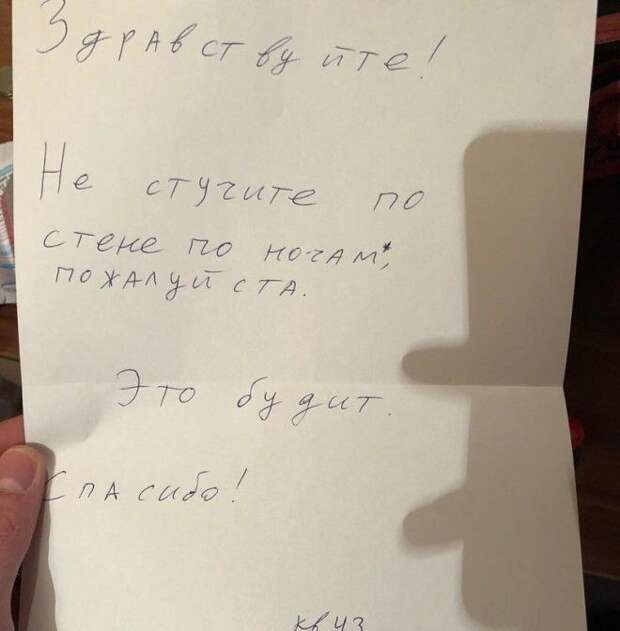 Здравствуйте!
Не стучите по
стене по ночам*,
пожалуйста.
Это будит.
Спасибо!
кв 43